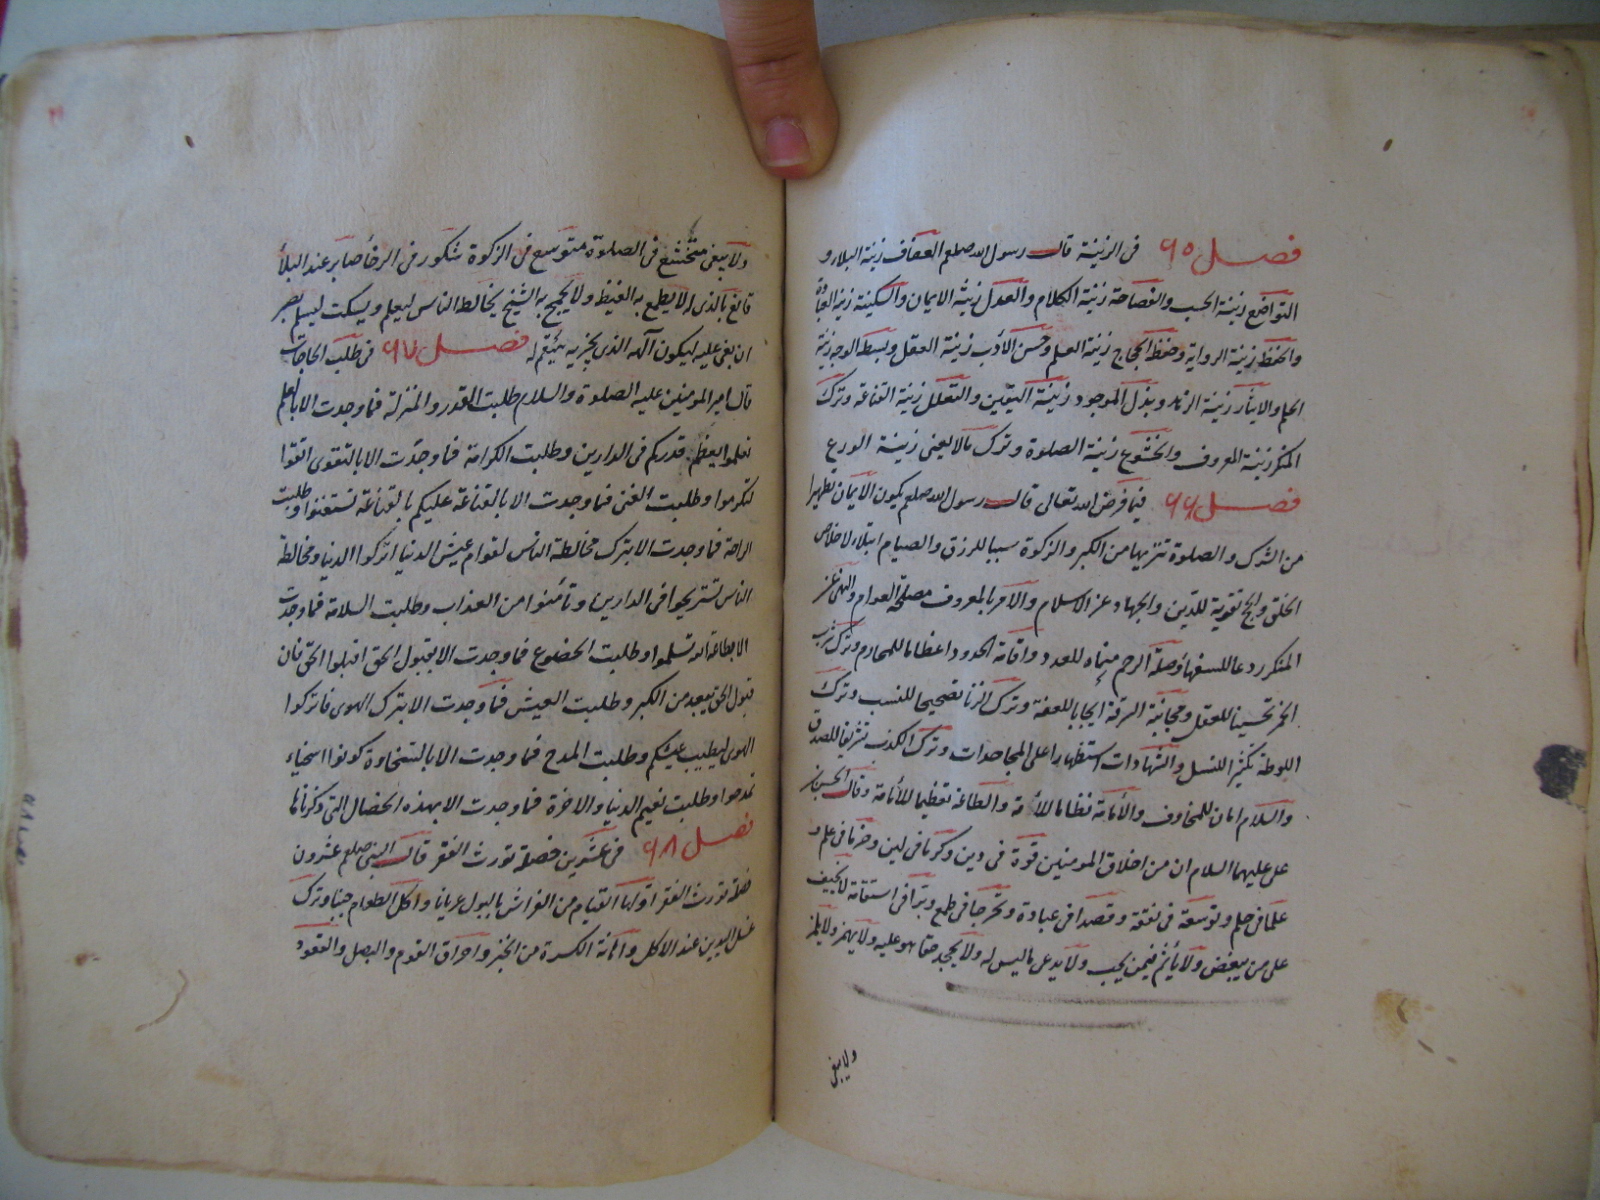 فصل ٩٥ فى الزينة قال رسول الله صلعم العفاف زينة البلاء و
التواضع زينة الحسب والفصاحة زينة الكلام والعدل زينة الايمان والسكينة زينة العبادة
والحفظ زينة الرواية وحفظ الحجاج زينة العلم وحسن الأدب زينة العقل وبسط الوجه زينة
الحلم والايثار زينة الزهد وبذل الموجود زينة اليقين والتقلل زينة القناعة وترك
المنكر زينة المعروف والخشوع زينة الصلوة وترك مالا يعنى زينة الورع
فصل ٩٦ فيما فرض الله تعالى قال رسول الله صلعم يكون الايمان تطهيرا
من الشرك والصلوة تنزيها من الكبر والزكوة سببا للرزق والصيام ابتلاء لاخلاص
الخلق والحج تقوية للدين والجهاد عز الاسلام والامر بالمعروف مصلحة العوام والنهى عن
المنكر ردعا للسفهاء وصلة الرحم منماه للعدد واقامة الحدود اعظاما للمحارم وترك شرب
الخمر تحسينا للعقل ومجانبة السرقة ايجابا للعفة وترك الزنا تصحيحا للنسب وترك
اللوطة تكثيرا للنسل والشهادات استظهارا على المجاحدات وترك الكذب تشريفا للصدق
والسلام امان للمخاوف والأمانة نظاما للأمة والطاعة تعظيما للأمامة وقال الحسين بن
على عليهما السلام ان من اخلاق المومنين قوة فى دين وكرما فى لين وحزما فى علم و
علما فى حلم وتوسعة فى نفقة وقصدا فى عبادة وتحرجا فى طمع وبرا فى استقامة لا يحيف
على من يبغض ولا يأثم فيمن يحب ولا يدعى ماليس له ولا يجحد حقا هو عليه ولا يهمز ولا يلمز
ولا يبغى
ولا يبغى متخشع فى الصلوة متوسع فى الزكوة شكور فى الرخأ صابر عند البلأ
قانع بالذى له لا يطمع به الغيظ ولا يجمح به الشح يخالط الناس ليعلم ويسكت ليسلم يصبر
ان بغى عليه ليكون آلهه الذى يجزيه ينتقم له فصل ٩٧ فى طلب الحاجات
قال امير المومنين عليه الصلوة والسلام طلبت القدر والمنزلة فما وجدت الا بالعلم
تعلموا يعظم قدركم فى الدارين وطلبت الكرامة فما وجدت الا بالتقوى اتقوا
لتكرموا وطلبت الغنى فما وجدت الا بالقناعة عليكم بالقناعة تستغنوا وطلبت
الراحة فما وجدت الا بترك مخالطة الناس لقوام عيش الدنيا اتركوا الدنيا ومخالطة
الناس تستريحوا فى الدارين وتأمنوا من العذاب وطلبت السلامة فما وجدت
الا بطاعة الله تسلموا وطلبت الخضوع فما وجدت الا بقبول الحق اقبلوا الحق فان
قبول الحق يبعد من الكبر وطلبت العيش فما وجدت الا بترك الهوى فاتركوا
الهوى ليطيب عيشكم وطلبت المدح فما وجدت الا بالسخاوة كونوا اسخياء
تمدحوا وطلبت نعيم الدنيا والاخرة فما وجدت الا بهذه الخصال التى ذكرناها
فصل ٩٨ فى عشرين خصلة تورث الفقر قال النبى صلعم عشرون
خصلة تورث الفقر اولها القيام من الفراش بالبول عريانا واكل الطعام جنبا وترك
غسل اليدين عند الاكل واهانة الكسرة من الخبز واحراق الثوم والبصل والقعود